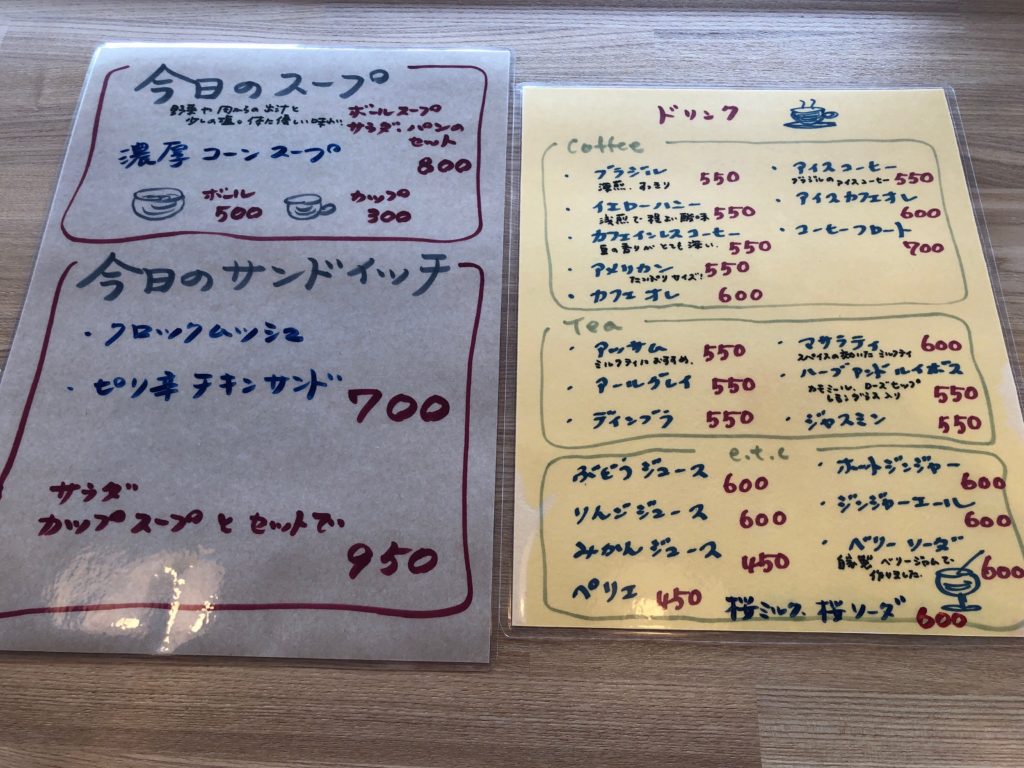 今日のスープ
野菜や肉からの出汁と
少しの塩。体に優しい味わい
ボールスープ
サラダ、パンの
セット
800
濃厚 コーンスープ
ボール
500
カップ
300
今日のサンドイッチ
・クロックムッシュ
・ピリ辛チキンサンド
700
サラダ
カップスープとセットで
950
ドリンク
Coffee
・ブラジル 550
深煎、すっきり
・イエローハニー
浅煎で程よい酸味 550
・カフェインレスコーヒー
豆の香りがとても深い。 550
・アメリカン 550
たっぷりサイズ!
・カフェオレ 600
・アイスコーヒー
ブラジルのアイスコーヒー 550
・アイスカフェオレ
600
・コーヒーフロート
700
Tea
・アッサム 550
ミルクティにおすすめ。
・アールグレイ 550
・ディンブラ 550
・マサラティ 600
スパイスの効いたミルクティ
・ハーブアンドルイボス
カモミール、ローズヒップ
レモングラス入り 550
・ジャスミン 550
e.t.c
ぶどうジュース
600
りんごジュース
600
みかんジュース
450
ペリエ 450
・ホットジンジャー
600
・ジンジャーエール
600
・ベリーソーダ
自製ベリージャムで
作りました。 600
桜ミルク、桜ソーダ
600